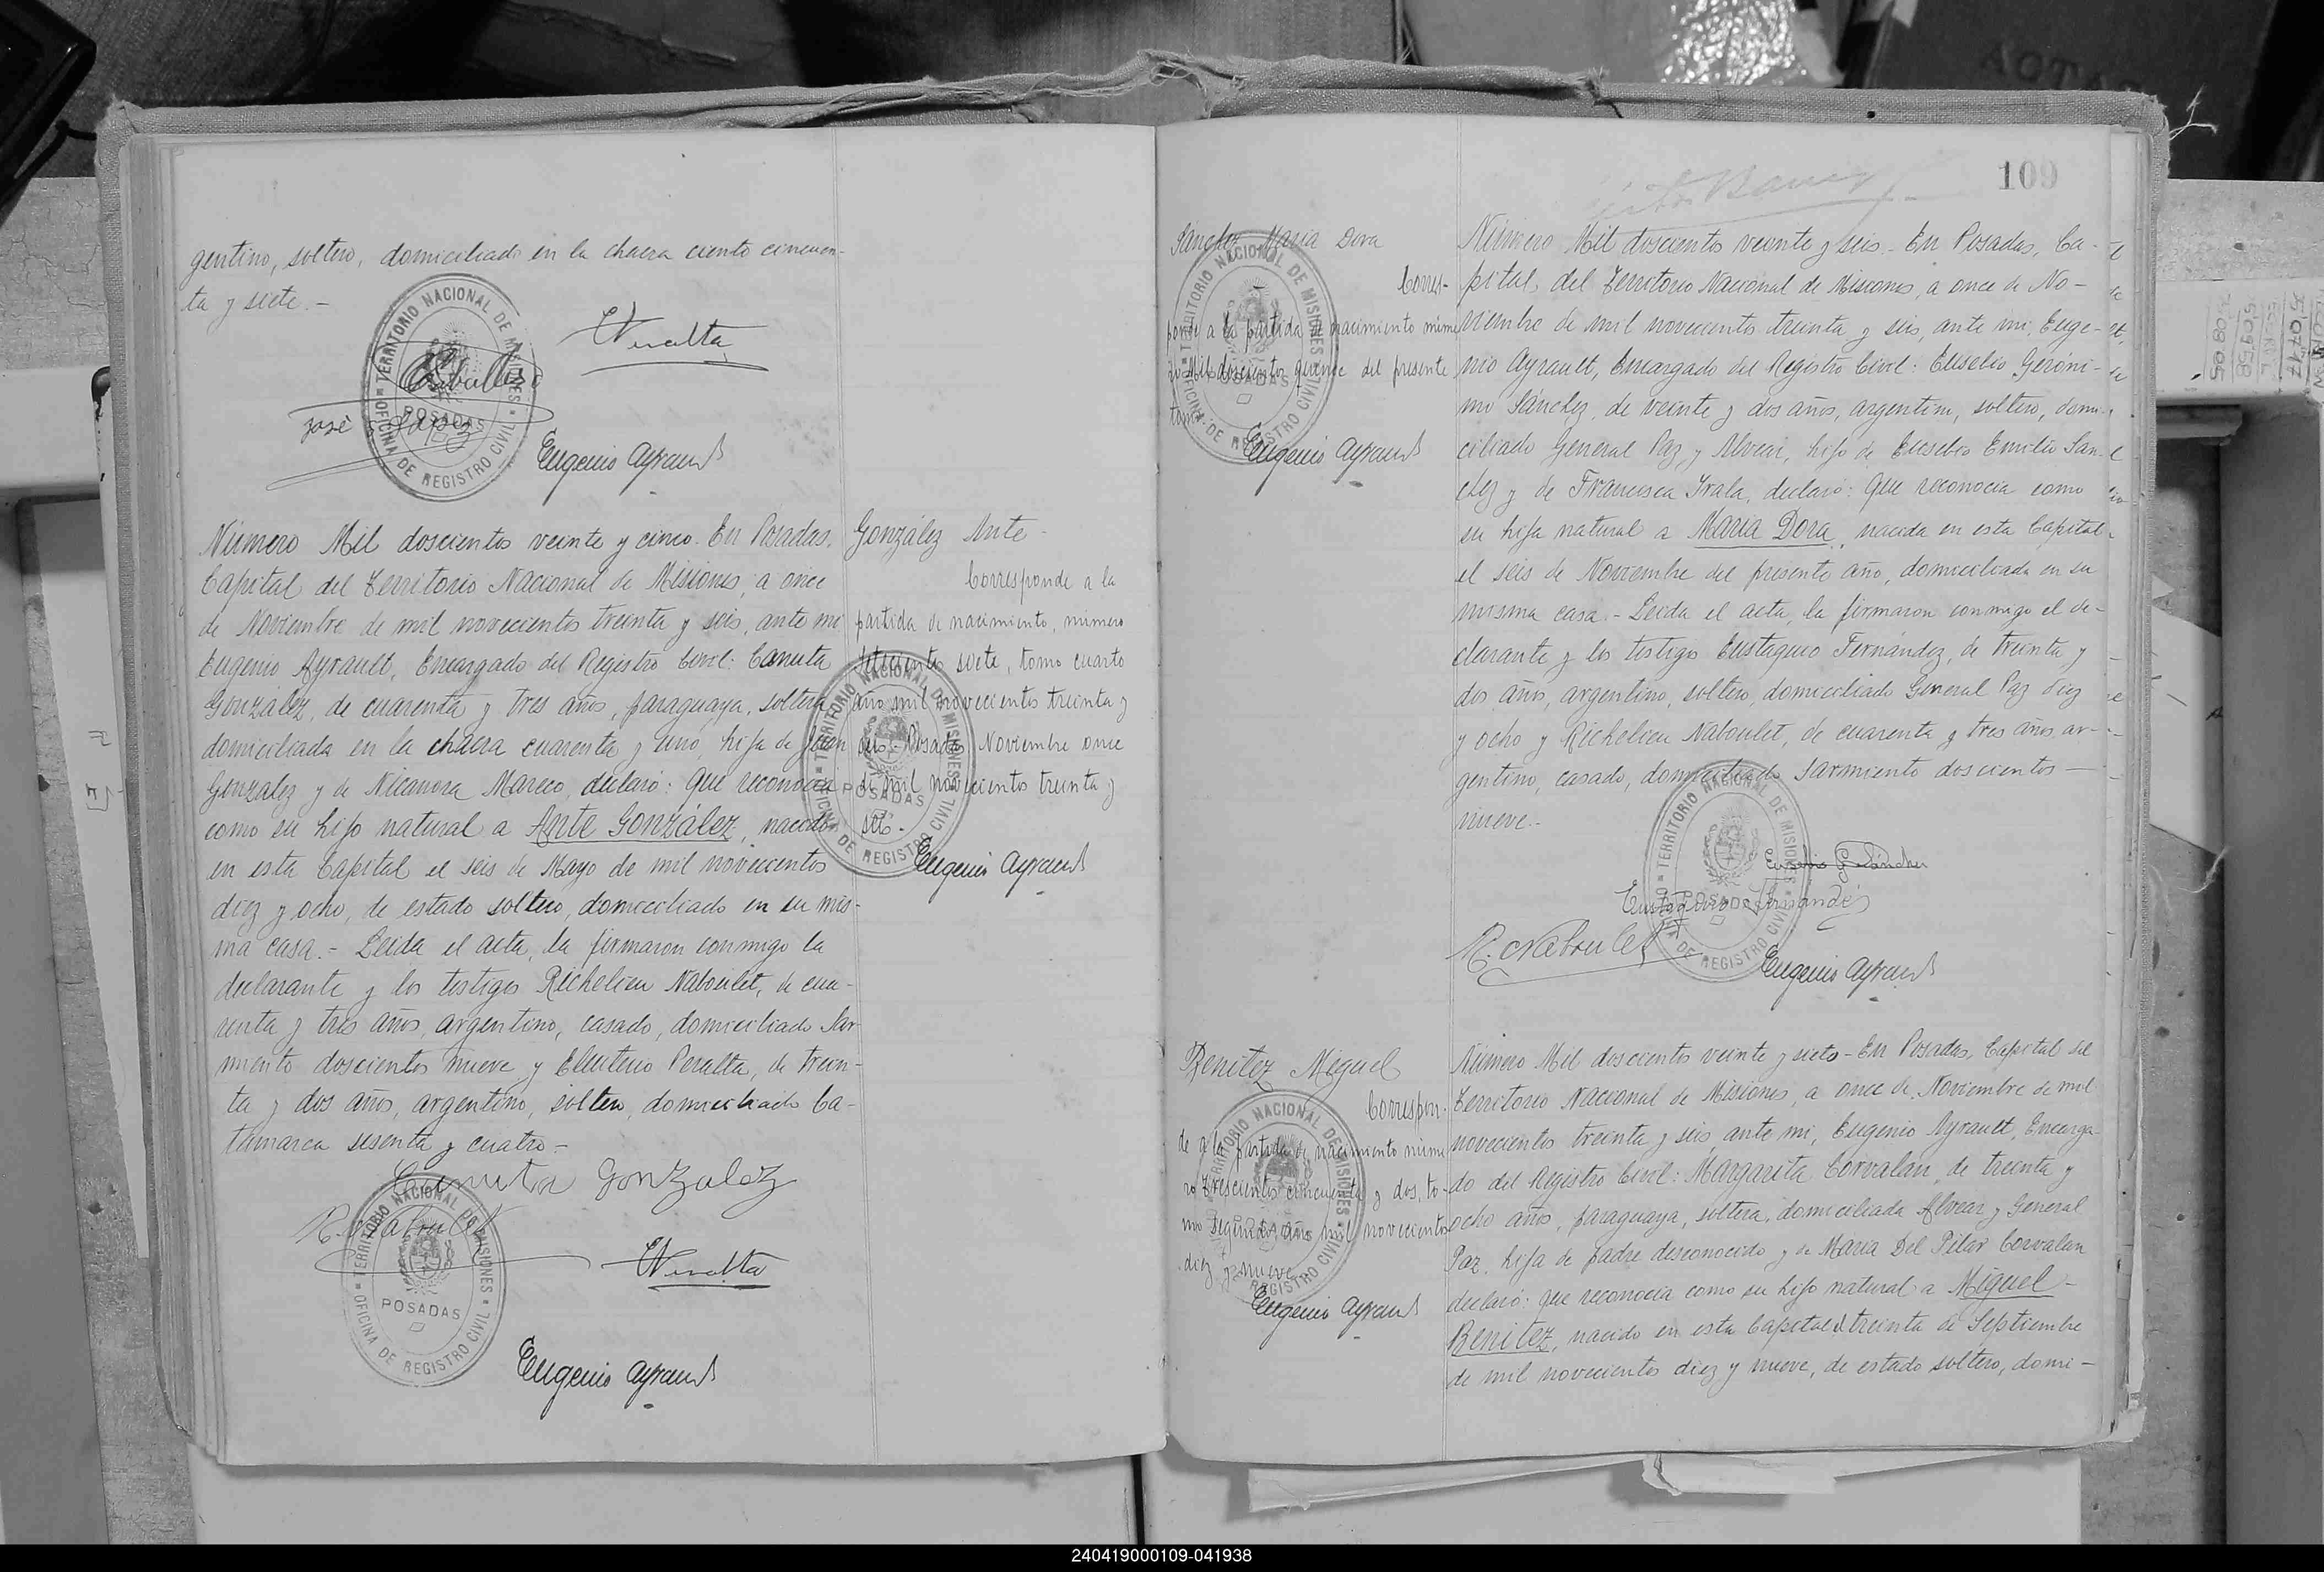 gentino, soltero, domiciliado en la chacra ciento cincuen-
ta y siete.-
TERRITORIO NACIONAL DE MISIONES
OFICINA DE REGISTRO CIVIL
POSADAS
José López
Eugenio Ayrault
Número Mil doscientos veinte y cinco. En Posadas,
Capital del Territorio Nacional de Misiones, a once
de Noviembre de mil novecientos treinta y seis, ante mi
Eugenio Ayrault, Encargado del Registro Civil: Canuta
González, de cuarenta y tres años, paraguaya, soltera
domiciliada en la chacra cuarenta y uno, hija de Juan
González y de Nicanora Mareco, declaró: Que reconocia
como su hijo natural a Ante González, nacido
en esta Capital el seis de Mayo de mil novecientos
diez y ocho, de estado soltero, domiciliado en su mis-
ma casa.- Leida el acta, la firmaron conmigo la
declarante y los testigos Richelieu Naboulet, de cua-
renta y tres años, argentino, casado, domiciliado Sar
miento doscientos nueve y Eleuterio Peralta, de trein-
ta y dos años, argentino, soltero, domiciliado Ca-
tamarca sesenta y cuatro.-
Canuta Gonzalez
R. Naboulet
TERRITORIO NACIONAL DE MISIONES
OFICINA DE REGISTRO CIVIL
POSADAS
Eugenio Ayrault
González Ante
Corresponde a la
partida de nacimiento, número
setecientos siete, tomo cuarto
año mil novecientos treinta y
seis.- Posadas, Noviembre once
de mil novecientos treinta y
seis.-
TERRITORIO NACIONAL DE MISIONES
OFICINA DE REGISTRO CIVIL
POSADAS
Eugenio Ayrault
109
Sánchez María Dora
Corres-
ponde a la partida de nacimiento núme
ro Mil doscientos quince del presente
tomo.
TERRITORIO NACIONAL DE MISIONES
OFICINA DE REGISTRO CIVIL
POSADAS
Eugenio Ayrault
Número Mil doscientos veinte y seis.- En Posadas, Ca-
pital del Territorio Nacional de Misiones, a once de No-
viembre de mil novecientos treinta y seis, ante mi, Euge-
nio Ayrault, Encargado del Registro Civil: Eusebio Geróni-
mo Sánchez, de veinte y dos años, argentino, soltero, domi-
ciliado General Paz y Alvear, hijo de Eusebio Emilio San-
chez y de Francisca Irala, declaró: Que reconocia como
su hija natural a María Dora, nacida en esta Capital
el seis de Noviembre del presente año, domiciliada en su
misma casa.- Leida el acta, la firmaron conmigo el de-
clarante y los testigos Eustaquio Fernández, de treinta y
dos años, argentino, soltero, domiciliado General Paz diez
y ocho y Richelieu Naboulet, de cuarenta y tres años, ar-
gentino, casado, domiciliado Sarmiento doscientos
nueve.-
Eusebio G. Sánchez
Eustaquio Fernández
R. Naboulet
TERRITORIO NACIONAL DE MISIONES
OFICINA DE REGISTRO CIVIL
POSADAS
Eugenio Ayrault
Benitez Miguel
Correspon-
de a la partida de nacimiento núme
ro trescientos cincuenta y dos, to-
mo segundo, año mil novecientos
diez y nueve.
TERRITORIO NACIONAL DE MISIONES
OFICINA DE REGISTRO CIVIL
Eugenio Ayrault
Número Mil doscientos veinte y siete - En Posadas, Capital del
Territorio Nacional de Misiones, a once de Noviembre de mil
novecientos treinta y seis ante mi, Eugenio Ayrault, Encarga
do del Registro Civil: Margarita Corvalan, de treinta y
ocho años, paraguaya, soltera, domiciliada Alvear y General
Paz, hija de padre desconocido y de María Del Pilar Corvalan
declaró: que reconocia como su hijo natural a Miguel
Benitez, nacido en esta Capital el treinta de Septiembre
de mil novecientos diez y nueve, de estado soltero, domi-
240419000109-041938